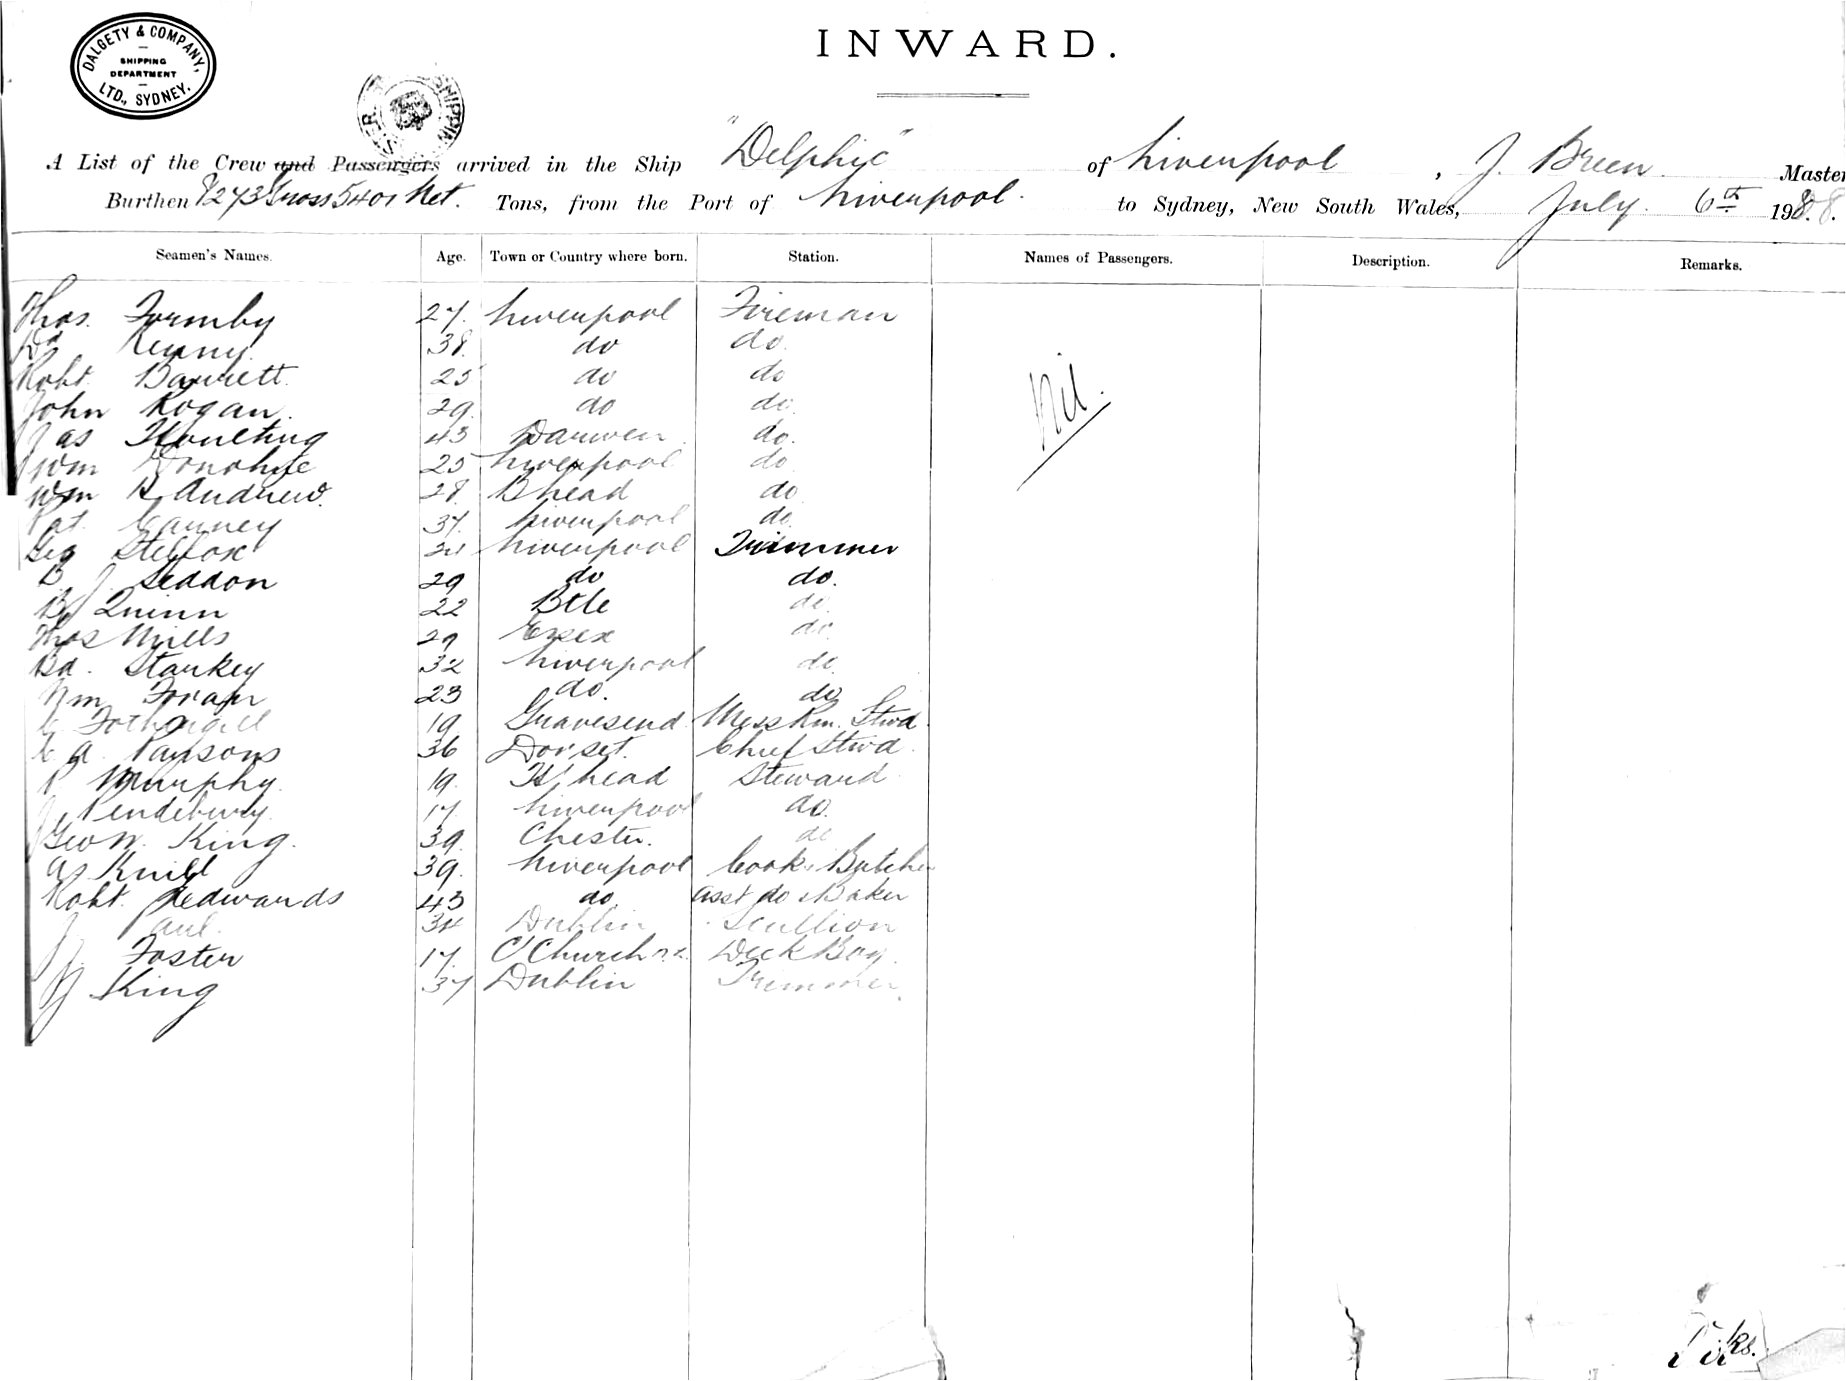 DALGETY & COMPANY,
SHIPPING
DEPARTMENT
LTD., SYDNEY.
INWARD.
A List of the Crew and Passengers arrived in the Ship "Delphic" of Liverpool, J. Breen. Master
Burthen 8273 Gross 5401 Net. Tons, from the Port of Liverpool. to Sydney, New South Wales, July 6th 1908.
Seamen's Names. Age. Town or Country where born. Station. Names of Passengers. Description. Remarks.
Thos. Formby 27. Liverpool Fireman
Kenny. 38. do do.
Robt. Barrett. 25 do do
John Rogan. 29. do do. Nil.
Jas 43 Darwen do.
Wm Donohue 25 Liverpool do
Wm H Andrew. 28. B'head do
Pat. 37. Liverpool do.
Geo Stelfox Liverpool Trimmer
J. Seddon 29 do do.
Quinn 22 Btle do.
Thos Mills 29 Essex do.
Ed. Starkey 32 Liverpool do
Wm Foran 23 do. do
C Fothergill 19 Gravesend. Mess Rm. Stwd.
C A. Parsons 36 Dorset. Chief Stwd.
P Murphy. 19. H'head Steward
J. Pendlebury. 17. Liverpool do.
Geo W. King. 39. Chester. do
Knill 39. Liverpool Cook & Butcher
Robt. Edwards 43 do. Asst do & Baker
J 34 Dublin Scullion
J. Foster 17. C'Church N.Z. Deck Boy.
J King 37 Dublin Trimmer.